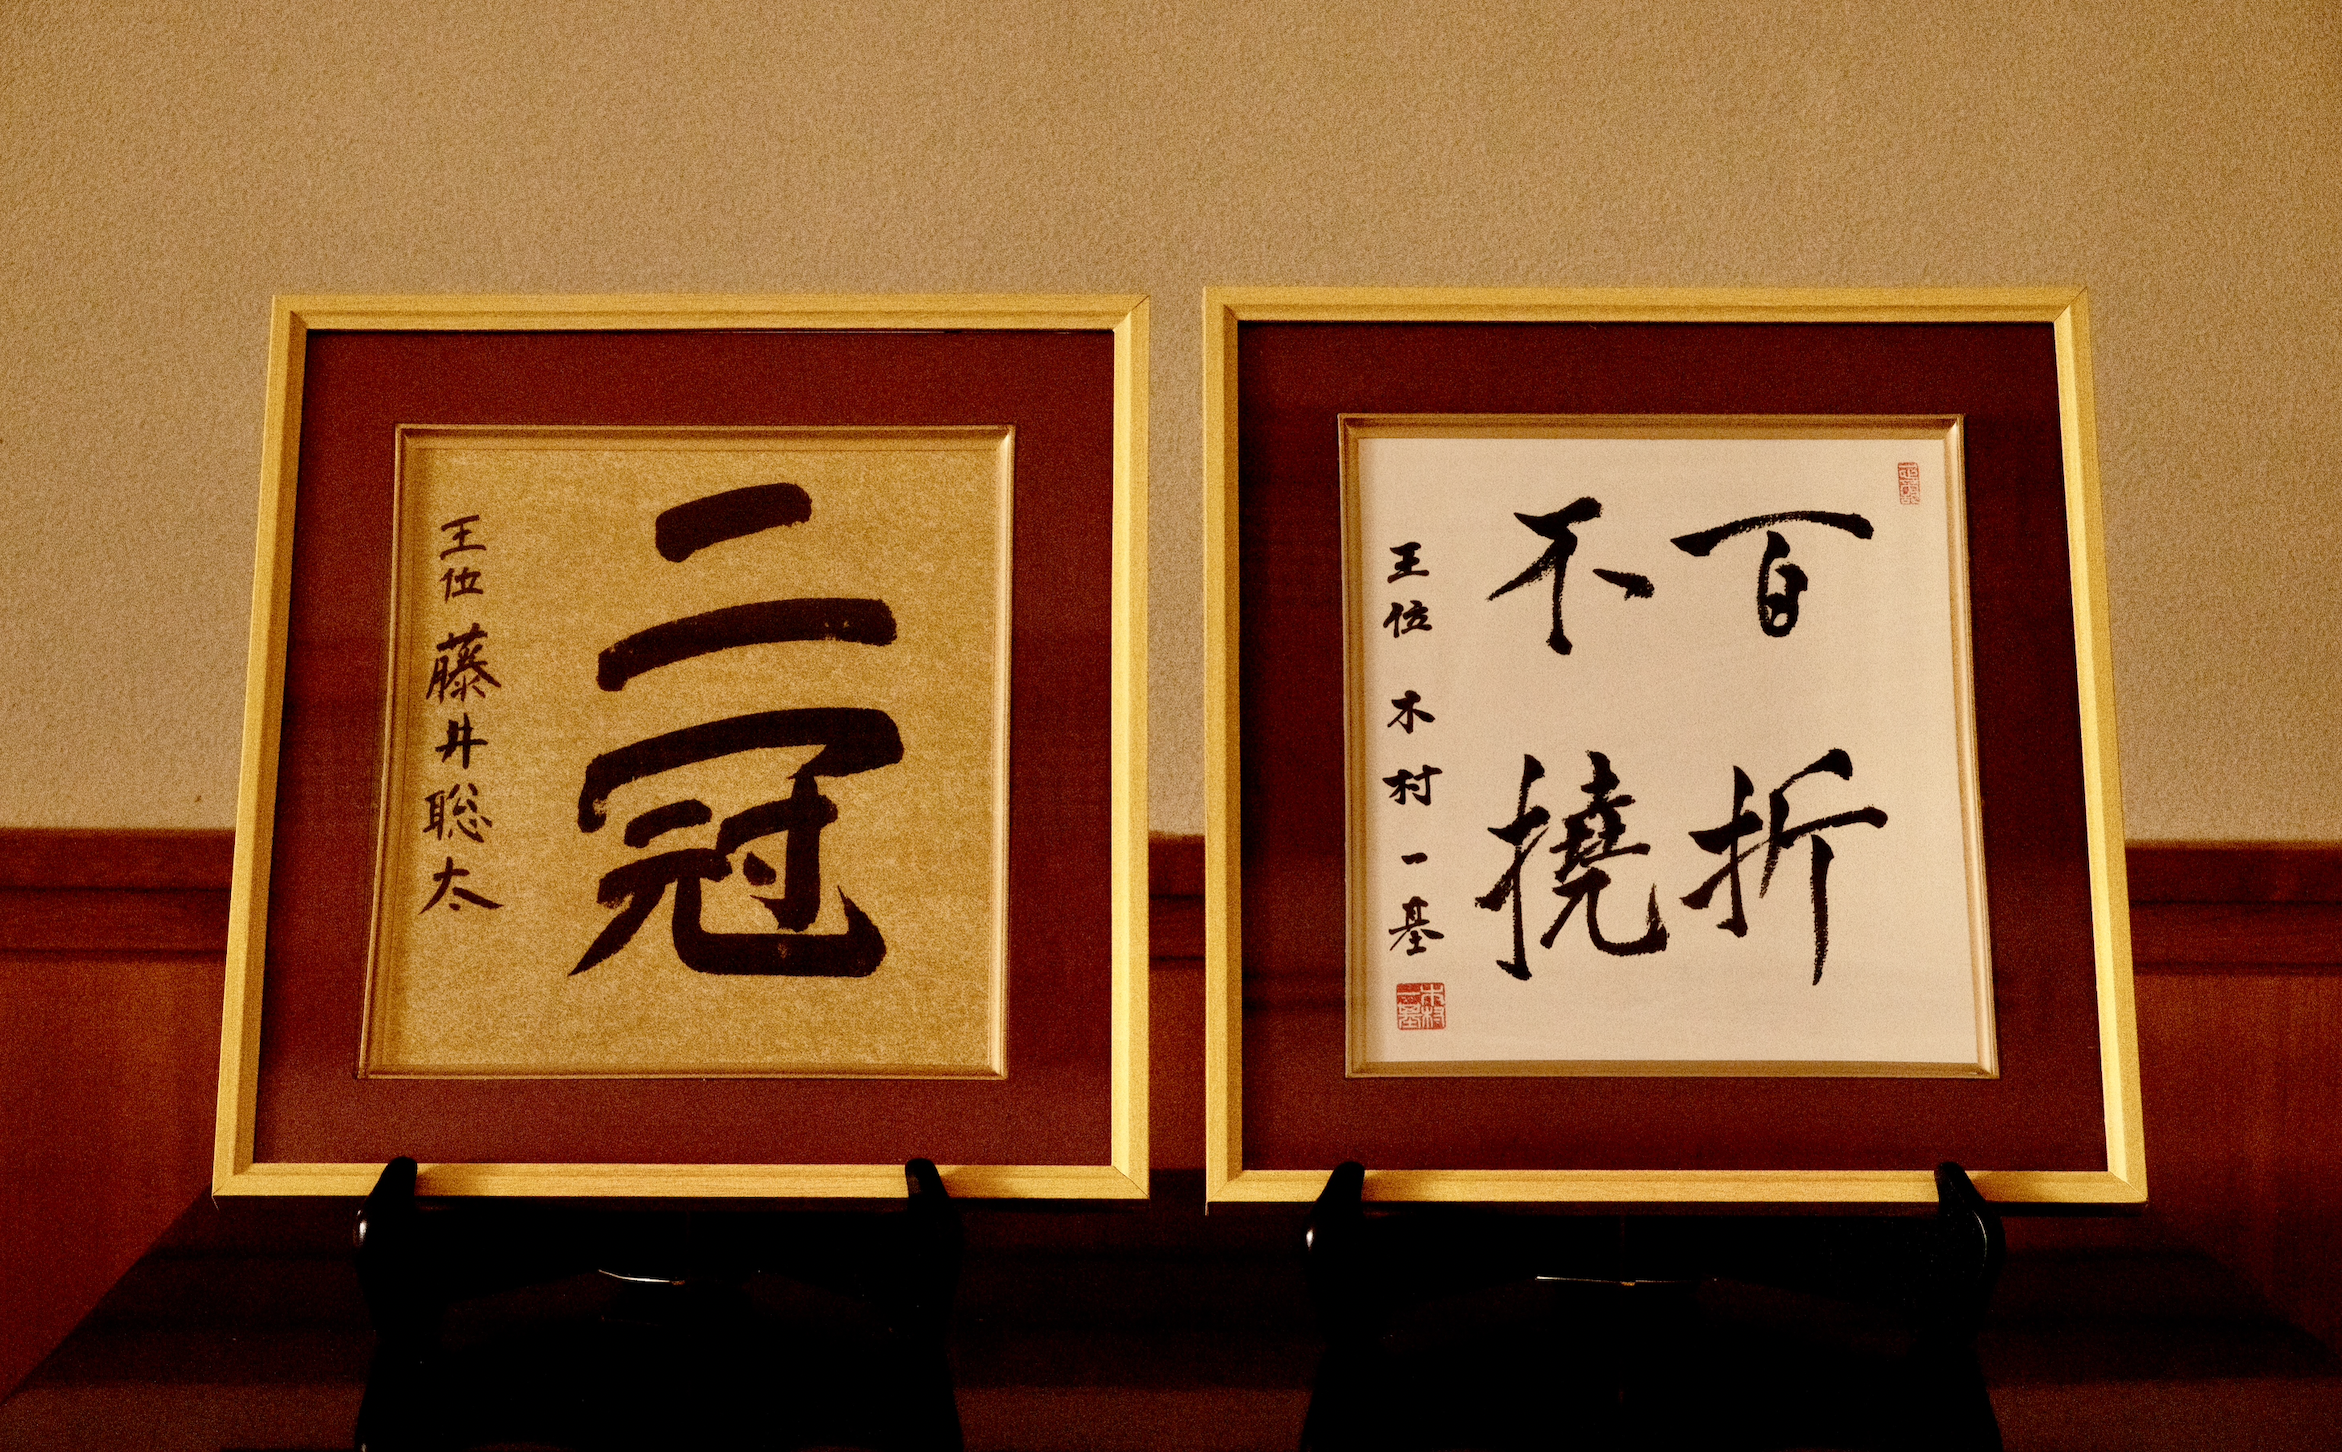 二冠
王位 藤井聡太
百折
不撓
王位 木村一基
木村
一基